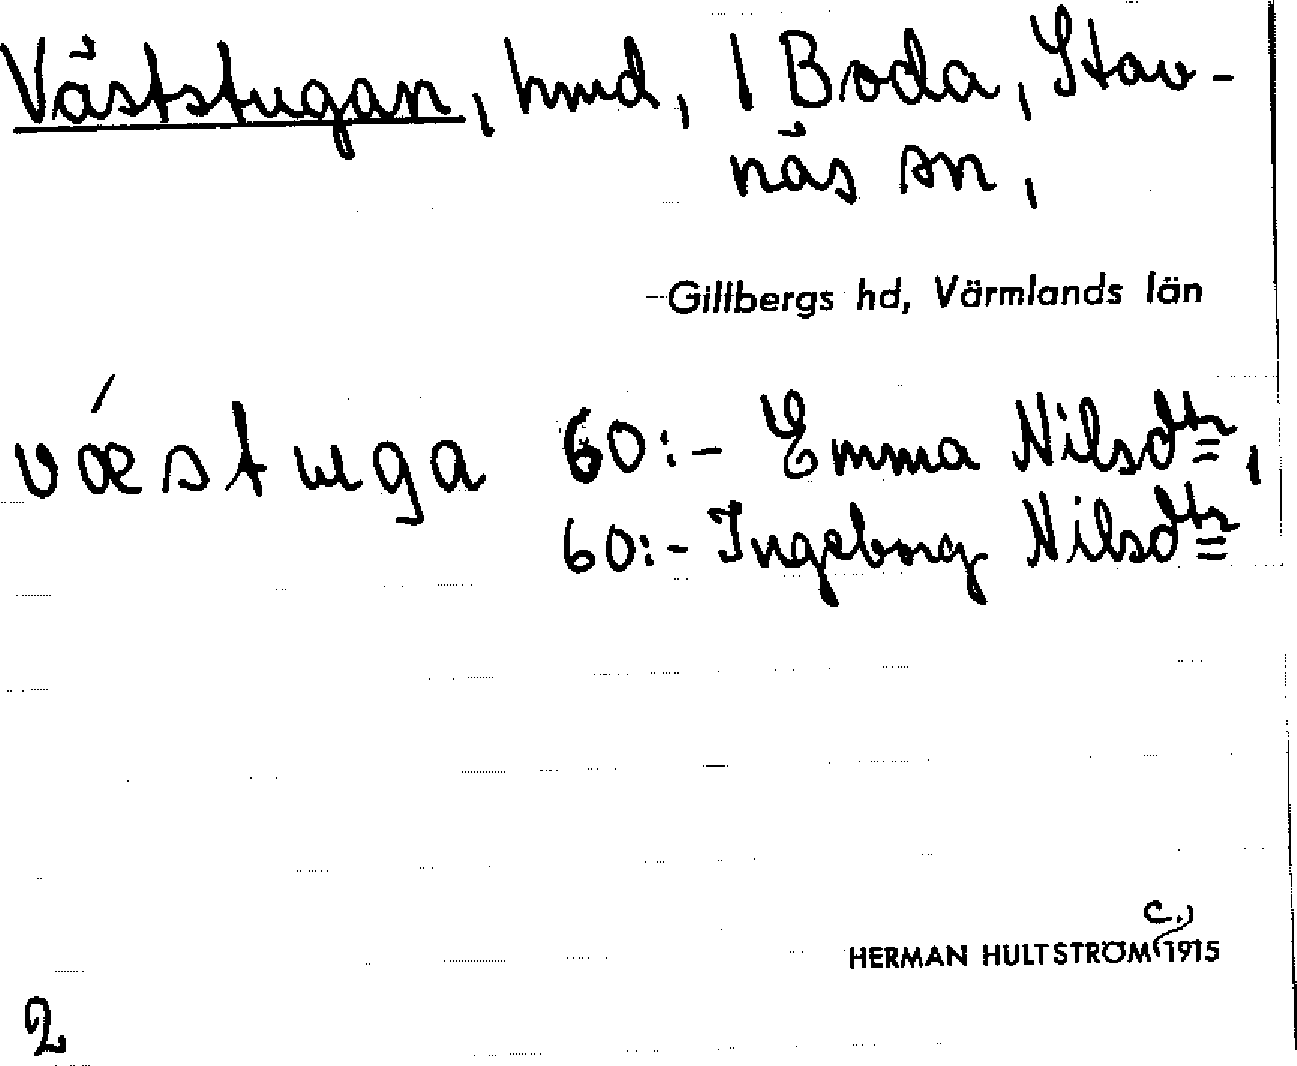 Väststugan, hmd, 1 Boda, Stav-
näs sn,
Gillbergs hd, Värmlands län
væ´stuga 60:- Emma Nilsdtr,
60:- Ingeborg Nilsdtr
c.
HERMAN HULTSTRÖM 1915
2